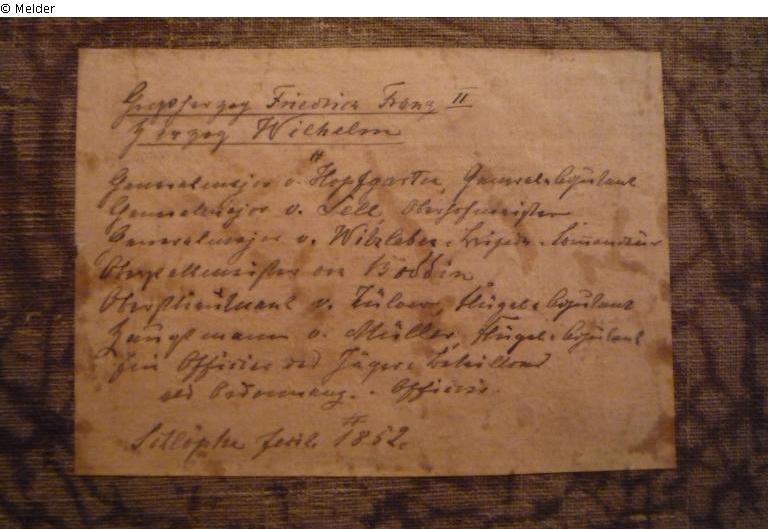 © Melder
Grossherzog Friedrich Franz II
Herzog Wilhelm
Generalmajor v. Hopfgarten, General-Adjutant
Generalmajor v. Sell, Oberhofmeister
Generalmajor v. Witzleben, Brigade-Commandeur
Oberstallmeister von Boddin
Oberstlieutnant v. Zülow, Flügel-Adjutant
Hauptmann v. Müller, Flügel-Adjutant
Ein Officier des Jäger-Bataillons
als Ordonnanz-Officier
fecit 1852.